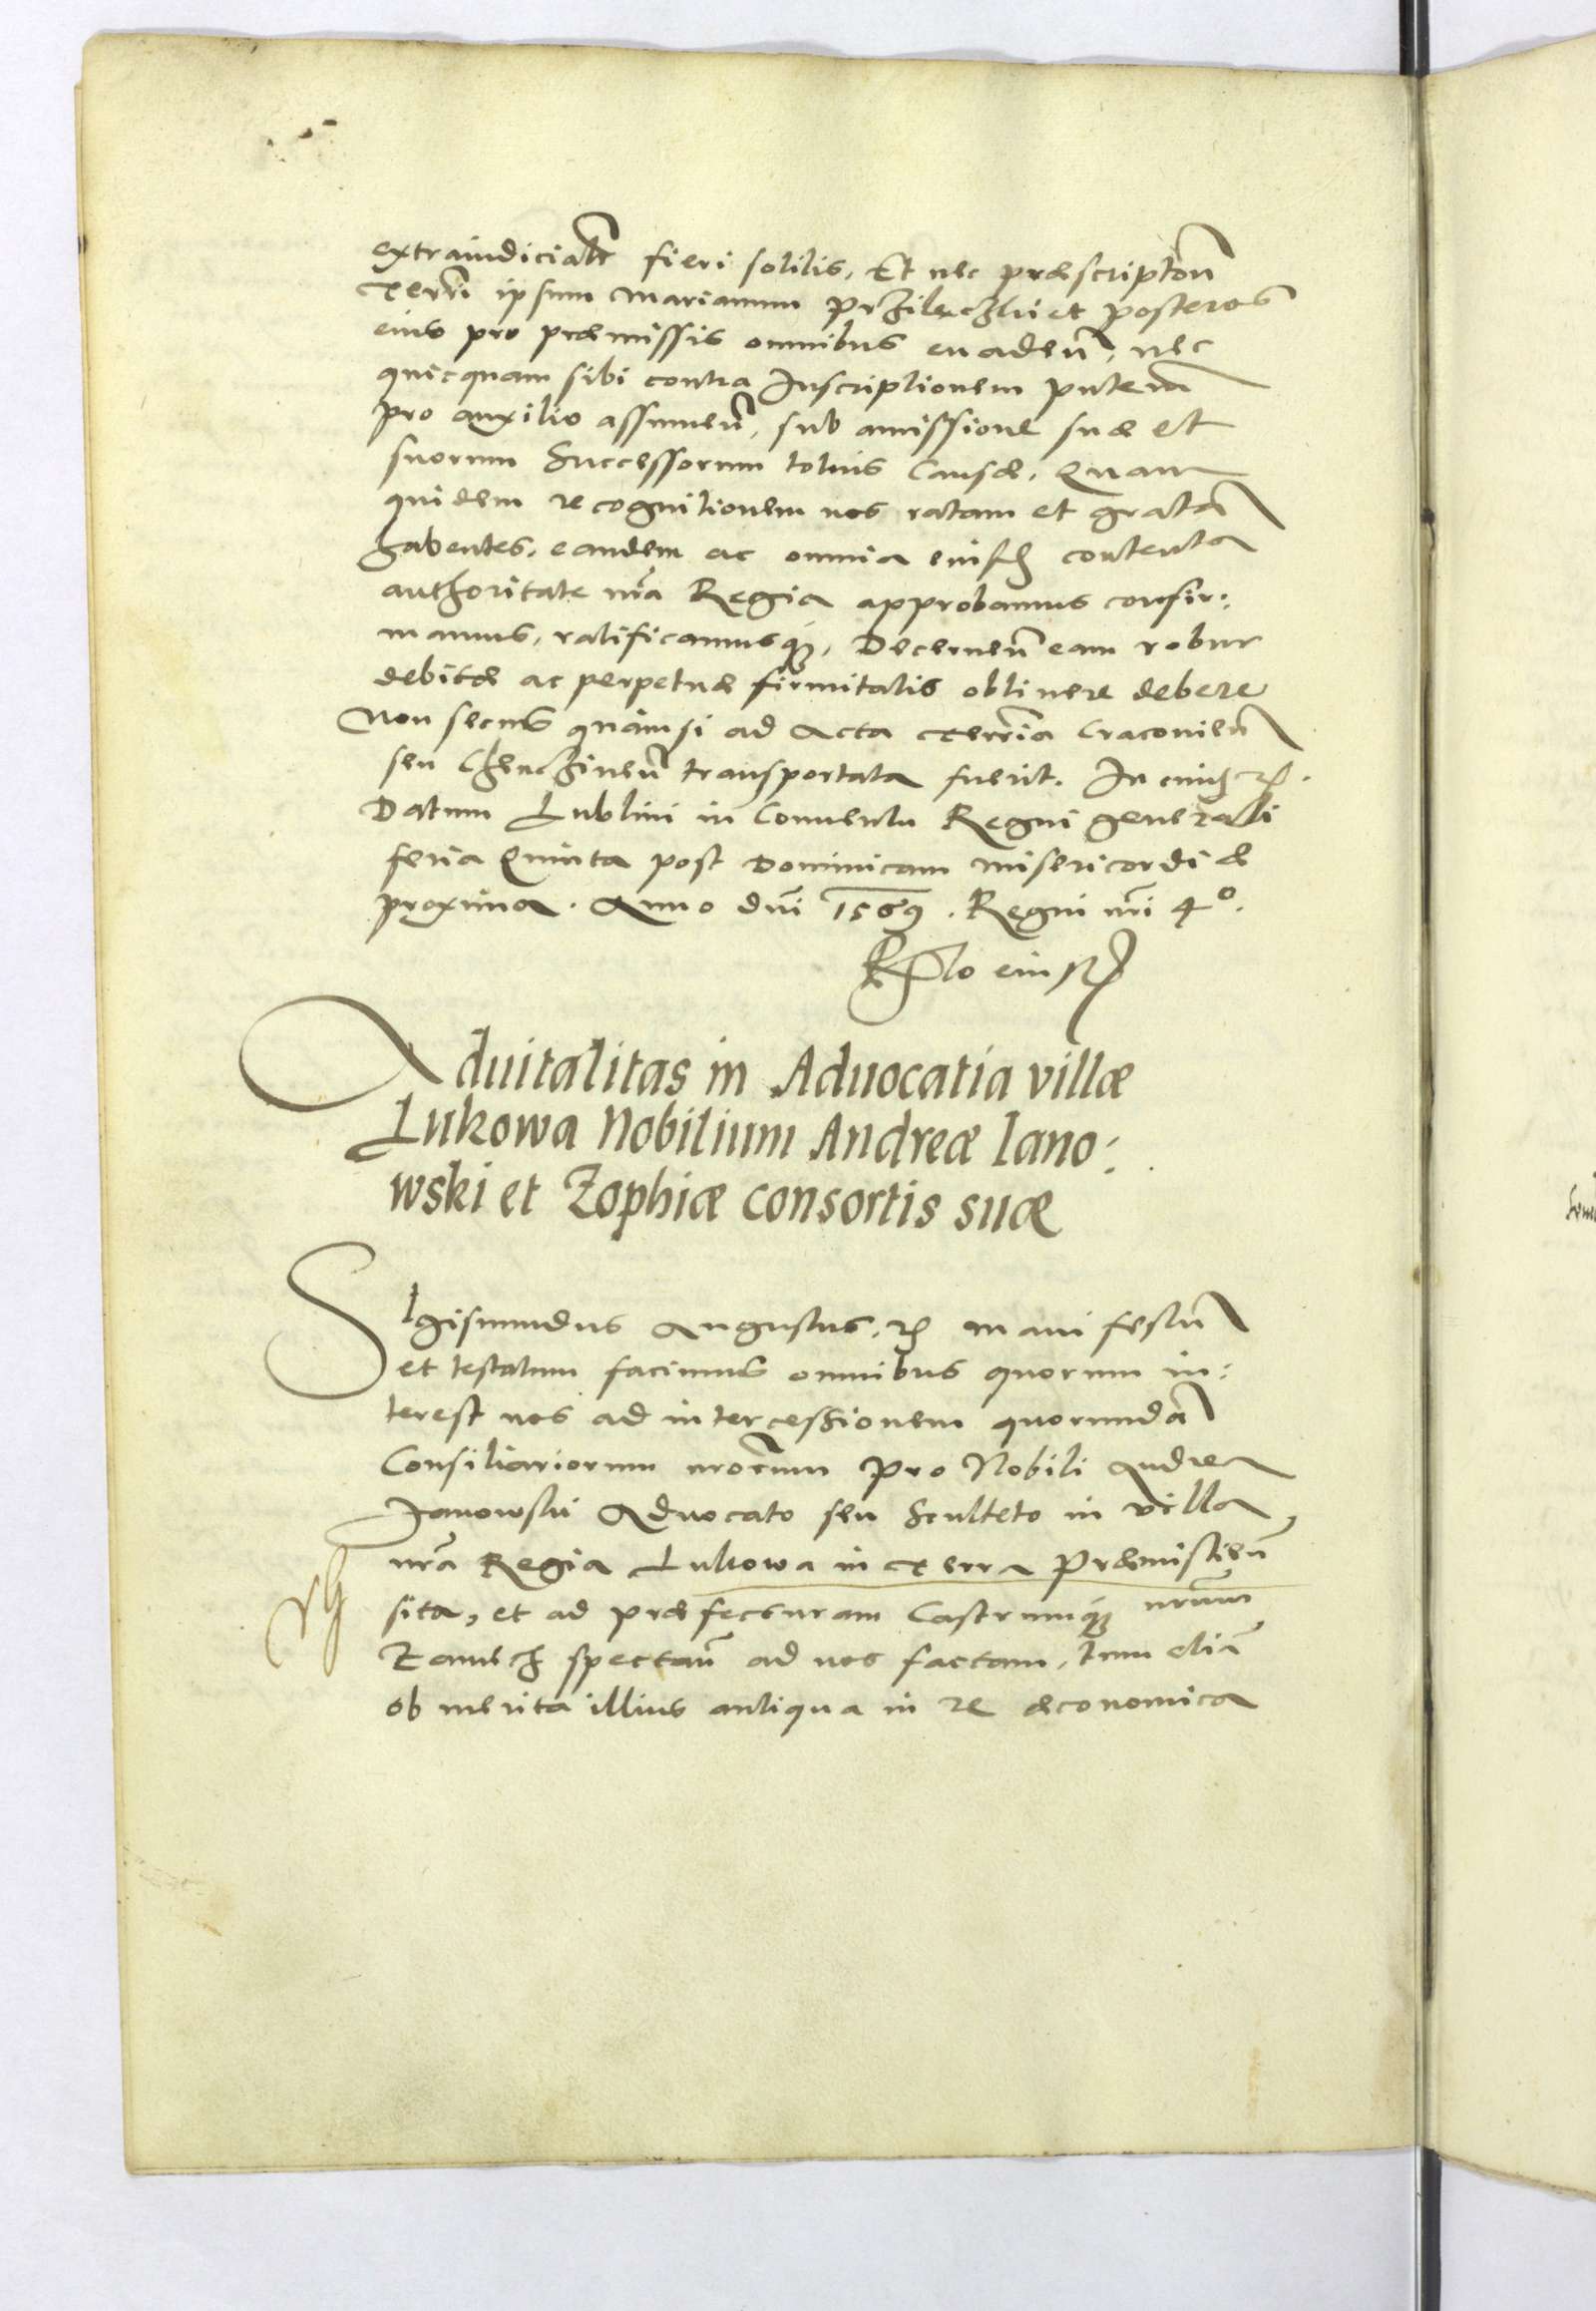 extraiudicialr fieri solitis, Et nec præscripton̄
terrn̄ ipsum Marianum Przilenczki et posteros
eius pro præmissis omnibus euaden̄, nec
quicquam sibi contra Inscriptionem pntem
pro auxilio assumen̄, sub amissione suæ et
suorum Successorum totius Causæ. Quam
quidem recognitionem nos ratam et gratā
habentes, eandem ac omnia eiusd contenta
authoritate nr̄a Regia approbamus confir:
mamus, ratificamusq;, Decernen̄ eam robur
debitæ ac perpetuæ firmitatis obtinere debere
Non secus quàm si ad Acta terrīa Cracouien̄
seu Chenczinen̄ transportata fuerit. In cuius rei.
Datum Lublini in Conuentu Regni generali
feria Quinta post Dominicam misericordiæ
proxima. Anno dni 1569. Regni nri 40.
Rlo eiusd
Aduitalitas in Aduocatia villæ
Lukowa Nobilium Andreæ Iano:
wski et Zophiæ consortis suæ
SIgismundus Augustus. etc manifestū
et testatum facimus omnibus quorum in:
terest nos ad intercessionem quorundā
Consiliariorum nrorum pro Nobili Andrea
Janowski Aduocato seu Sculteto in villa
nr̄a Regia Lukowa in terra Præmislien̄
sita, et ad præfecturam Castrumq; nrum
Zamech spectan̄ ad nos factam, tum etiā
ob merita illius antiqua in re æconomica